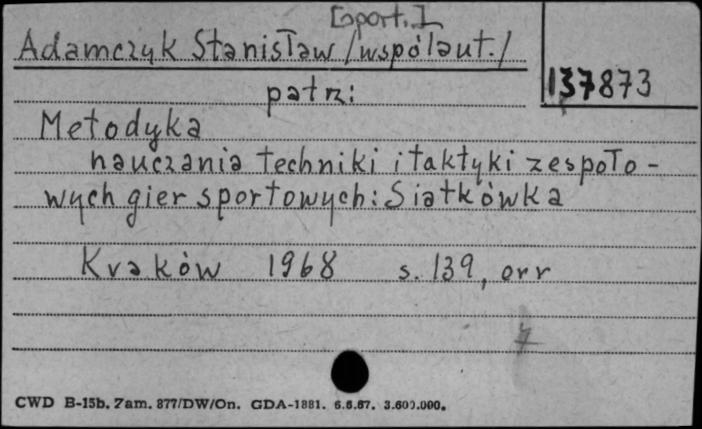 [sport.]
Adamczyk Stanisław /współaut./
137873
patrz:
Metodyka
nauczania techniki i taktyki zespoło-
wych gier sportowych: Siatkówka
Kraków 1968 s. 139, err
CWD B-15b. Zam. 877/DW/On. GDA-1881. 6.6.67. 3.600.000.